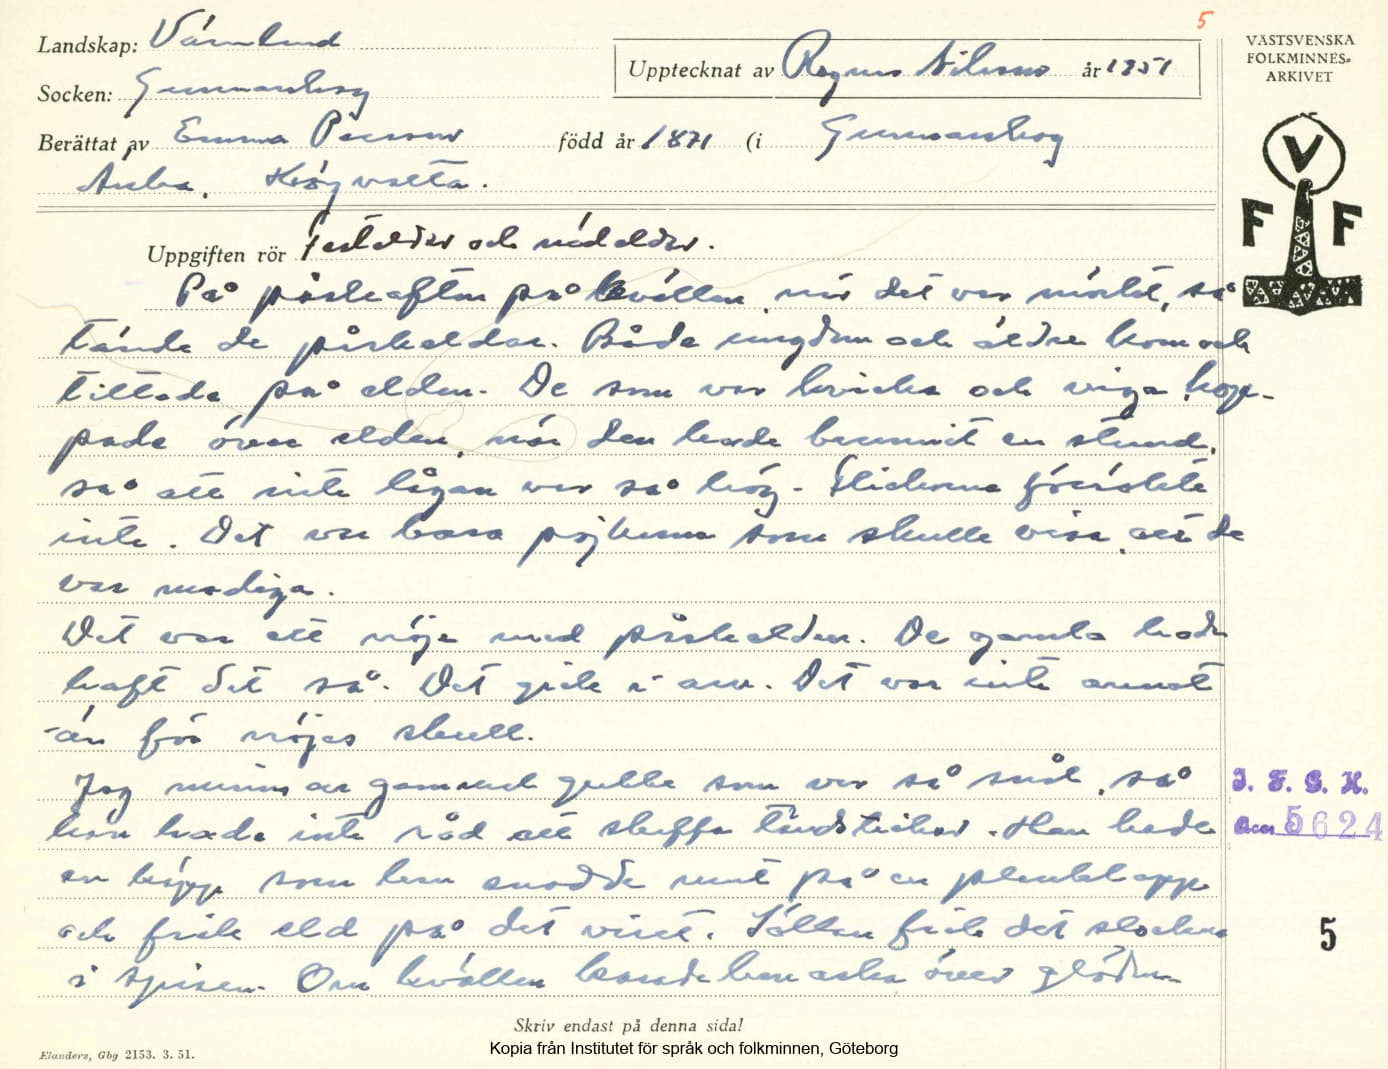 5
Landskap: Värmland
Socken: Gunnarskog
Upptecknat av Ragnar Nilsson år 1951
VÄSTSVENSKA
FOLKMINNES-
ARKIVET
Berättat av Emma Persson född år 1871 (i Gunnarskog
V
F F
Uppgiften rör Festeldar och nödeldar.
På påskafton på kvällen, när det var mörkt, så
tände de påskeldar. Både ungdom och äldre kom och
tittade på elden. De som var kvicka och viga hop-
pade över elden, när den hade brunnit en stund,
så att inte lågan var så hög. Flickorna försökte
inte. Det var bara pojkarna som skulle visa, att de
var modiga.
Det var ett nöje med påskelden. De gamla hade
haft det så. Det gick i arv. Det var inte annat
än för nöjes skull.
Jag minns en gammal gubbe som var så snål, så
han hade inte råd att skaffa tändstickor. Han hade
en käpp som han snodde runt på en
och fick eld på det viset. Sällan fick det slockna
i spisen. Om kvällen kasade han aska över glöden
I. F. G. H.
Acc 5624
5
Skriv endast på denna sida!
Elanders, Gbg 2153. 3. 51.
Kopia från Institutet för språk och folkminnen, Göteborg